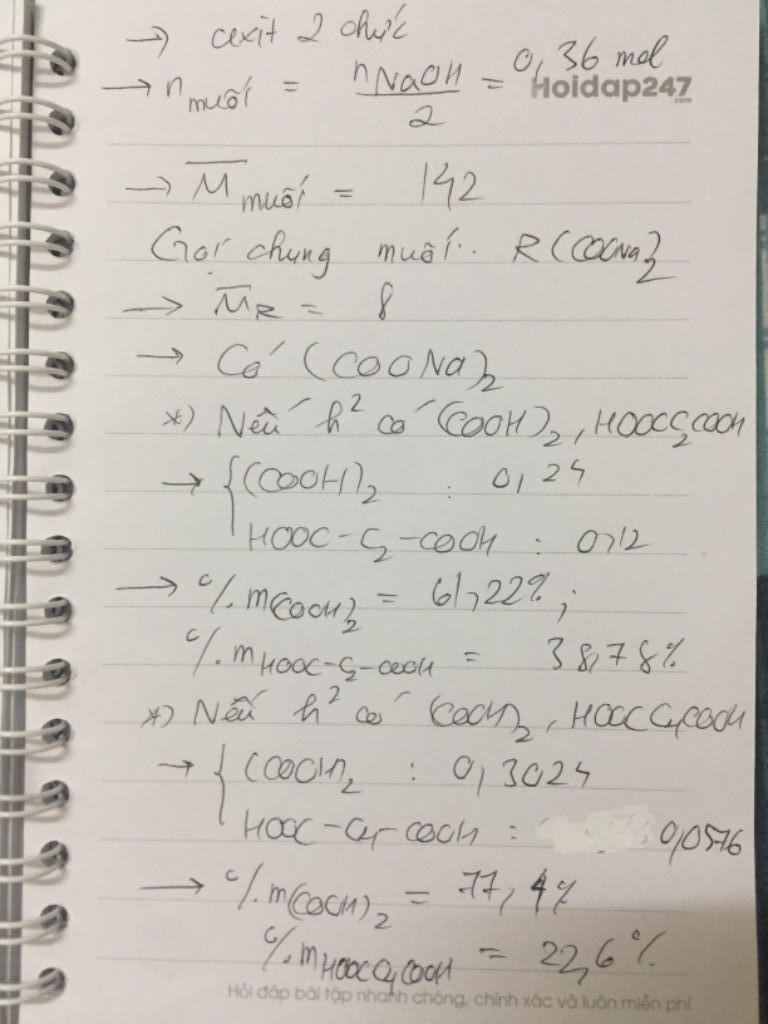 → axit 2 chức
→ n muối = nNaOH / 2 = 0,36 mol
Hoidap247
.com
→ M̅ muối = 142
Gọi chung muối: R(COONa)2
→ M̅R = 8
→ Có (COONa)2
*) Nếu h² có (COOH)2, HOOCC2COOH
→ { (COOH)2 : 0,24
HOOC-C2-COOH : 0,12
→ %m(COOH)2 = 61,22%;
%mHOOC-C2-COOH = 38,78%
*) Nếu h² có (COOH)2, HOOCC4COOH
→ { (COOH)2 : 0,3024
HOOC-C4-COOH : 0,0576
→ %m(COOH)2 = 77,4%
%mHOOCC4COOH = 22,6%
Hỏi đáp bài tập nhanh chóng, chính xác và luôn miễn phí